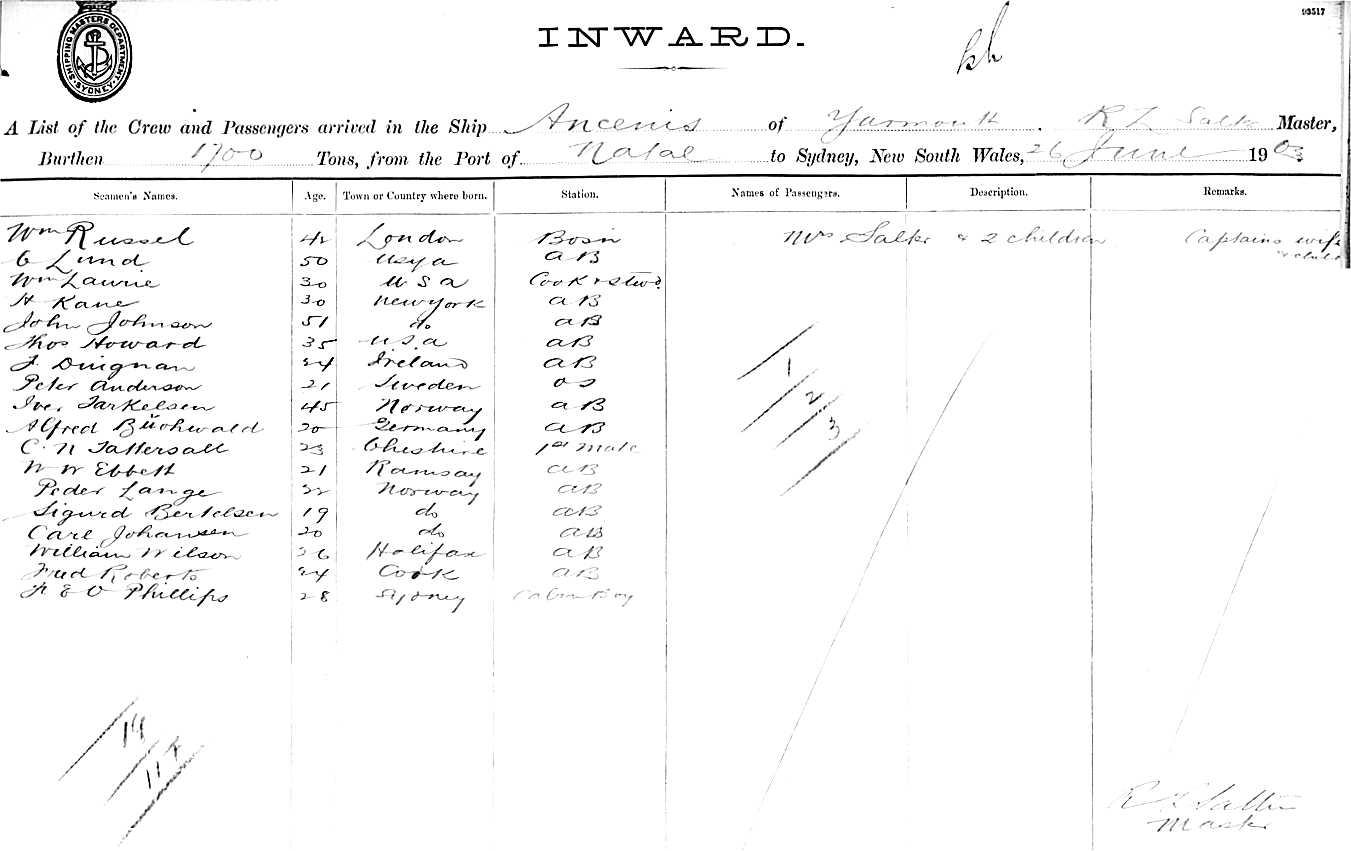 93517
SHIPPING MASTERS DEPARTMENT SYDNEY
INWARD.
A List of the Crew and Passengers arrived in the Ship Ancenis of Yarmouth . R L Salter Master,
Burthen 1700 Tons, from the Port of Natal to Sydney, New South Wales, 26 June 1903
Seamen's Names. Age. Town or Country where born. Station. Names of Passengers. Description. Remarks.
Wm Russel 42 London Bosn Mrs Salter & 2 children Captains wife
C Lund 50 Usya AB & child
Wm Laurie 30 U S A Cook & Stwd
H Kane 30 New York AB
John Johnson 51 do AB
Thos Howard 35 U.S.A AB
J Duignan 24 Ireland AB
Peter Anderson 21 Sweden OS
Iver Tarkelsen 45 Norway AB
Alfred Buchwald 20 Germany AB
C. N Tattersall 23 Cheshire 1st Mate
W W Ebbett 21 Ramsay AB
Peder Lange 22 Norway AB
Sigurd Bertelsen 19 do AB
Carl Johansen 20 do AB
William Wilson 26 Halifax AB
Fred Roberts 24 Cook AB
F E O Phillips 28 Sydney Cabin Boy
1
2
3
19
R L Salter
Master